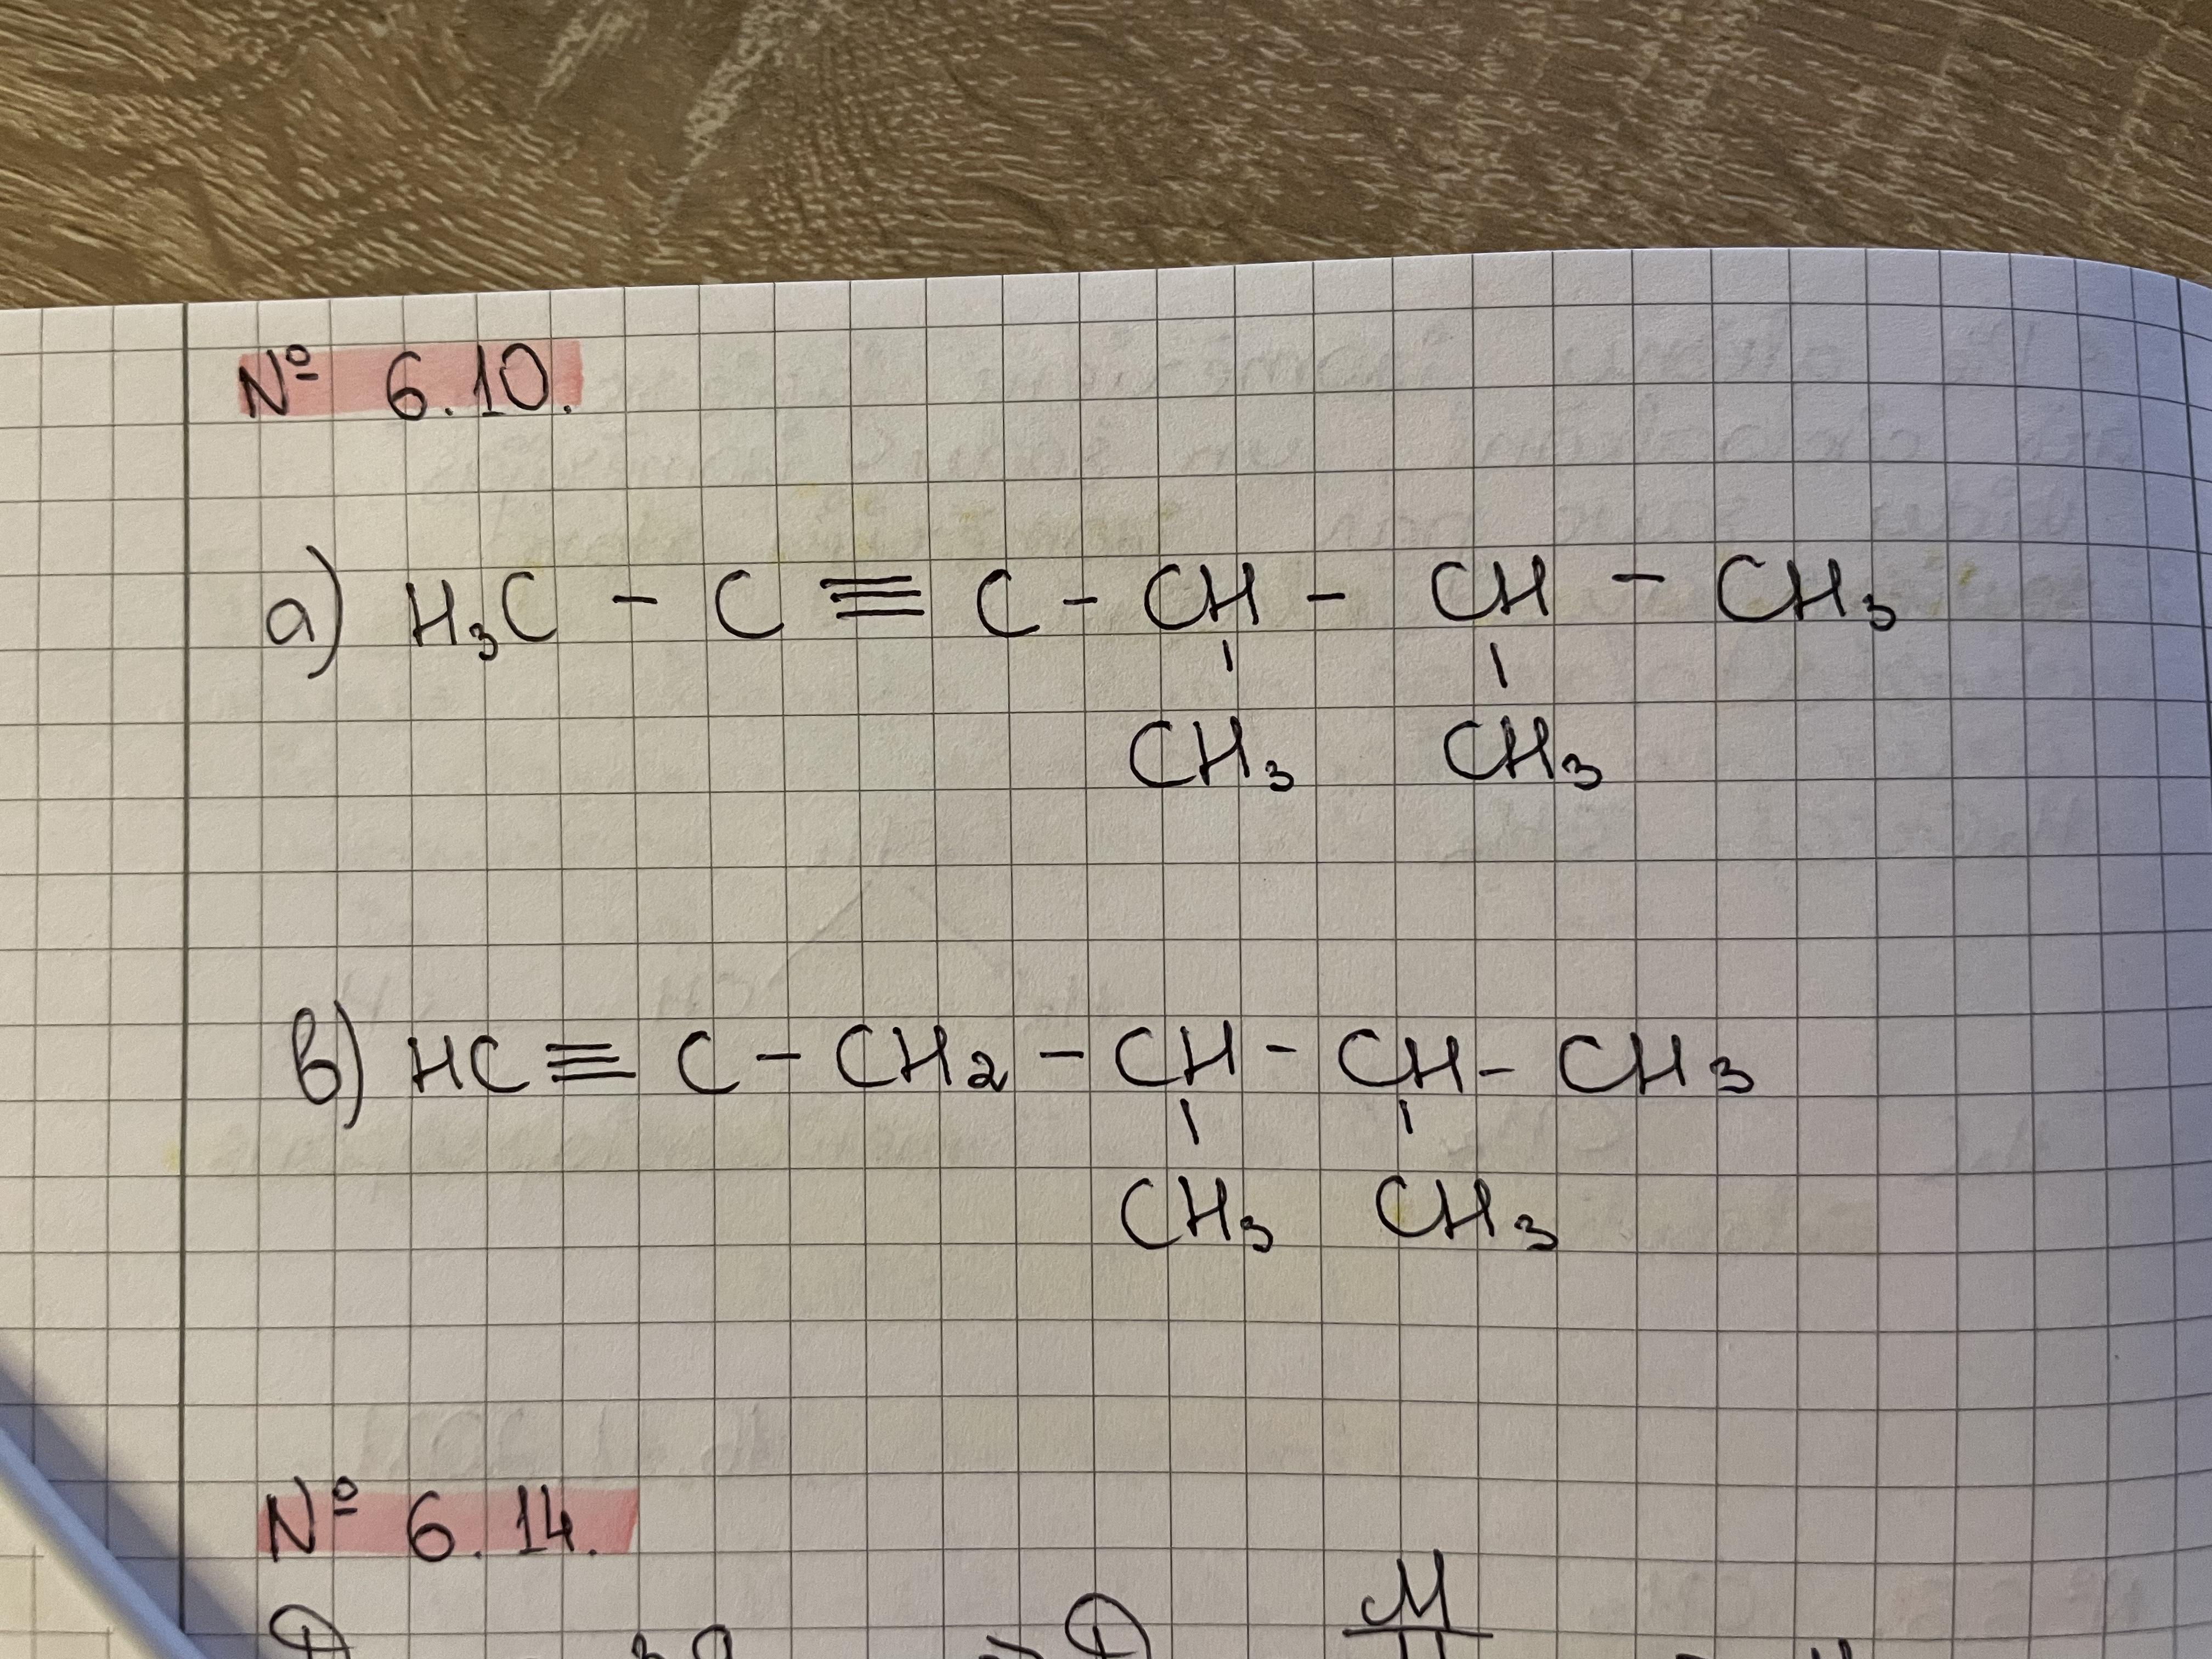 Nº 6.10.
a) H₃C - C ≡ C - CH - CH - CH₃
CH₃ CH₃
b) HC ≡ C - CH₂ - CH - CH - CH₃
CH₃ CH₃
Nº 6.14.